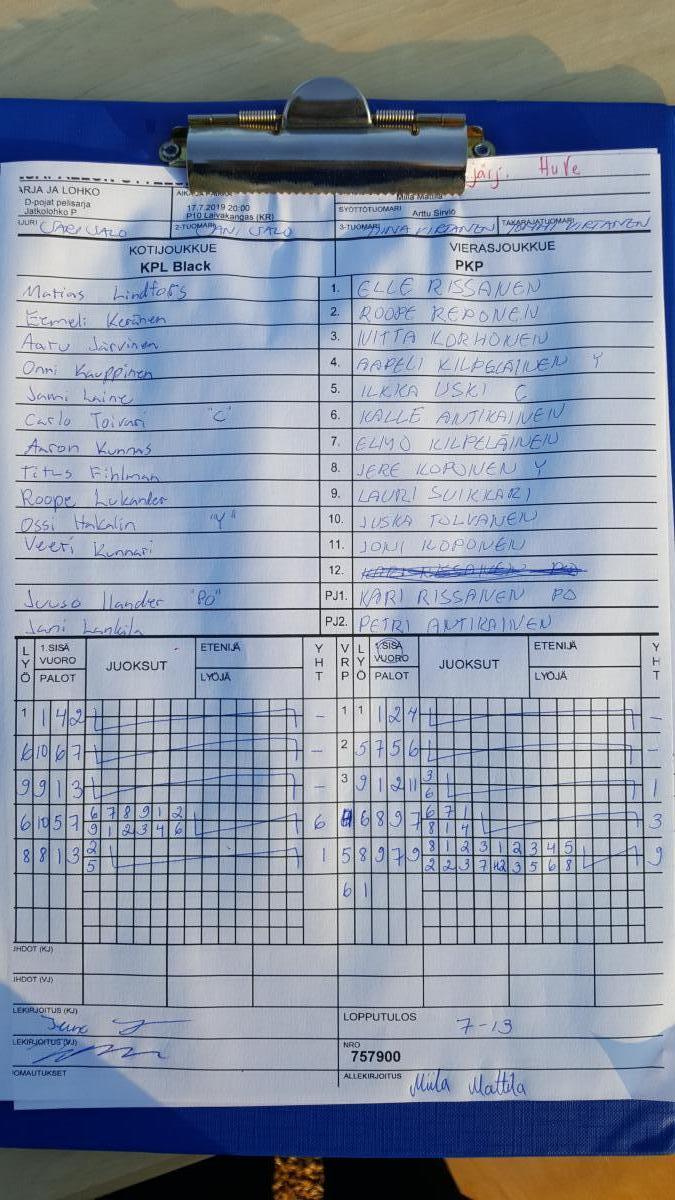 järj. HuRe
ARJA JA LOHKO
D-pojat pelisarja
Jatkolohko P
17.7.2019 20:00
P10 Laivakangas (KR)
Milla Mattila
SYÖTTÖTUOMARI
Arttu Sirviö
2-TUOMARI
JANI SALO
3-TUOMARI
VIRTANEN
TAKARAJATUOMARI
VIRTANEN
KOTIJOUKKUE
KPL Black
VIERASJOUKKUE
PKP
Matias Lindfors 1. ELLE RISSANEN
Eemeli Keränen 2. ROOPE REPONEN
Aaru Järvinen 3. NITTA KORHONEN
Onni Kauppinen 4. AAPELI KILPELÄINEN Y
Jami Laine 5. ILKKA USKI C
Carlo Toivari "C" 6. KALLE ANTIKAINEN
Aaron Kunnas 7. ELMO KILPELÄINEN
Titus Fihlman 8. JERE KOPONEN Y
Roope Lukander 9. LAURI SUIKKARI
Ossi Hakalin "Y" 10. JUSKA TOLVANEN
Veeti Kunnari 11. JONI KOPONEN
12.
Juuso Ilander "PO" PJ1. KARI RISSANEN PO
Jani Lankila PJ2. PETRI ANTIKAINEN
LYÖ 1.SISÄ VUORO PALOT JUOKSUT ETENIJÄ LYÖJÄ YHT VRP LYÖ 1.SISÄ VUORO PALOT JUOKSUT ETENIJÄ LYÖJÄ YHT
1 1 4 2 – 1 1 1 2 4 –
6 10 6 7 – 2 5 7 5 6 –
9 9 1 3 – 3 9 1 2 11 3 1
6
6 10 5 7 6 7 8 9 1 2 6 4 6 8 9 7 6 7 1 3
9 1 2 3 4 6 8 1 4
8 8 1 3 2 1 5 8 9 7 9 8 1 2 3 1 2 3 4 5 9
5 2 2 3 7 12 3 5 6 8
6 1
LOPPUTULOS
7-13
NRO
757900
ALLEKIRJOITUS
Milla Mattila